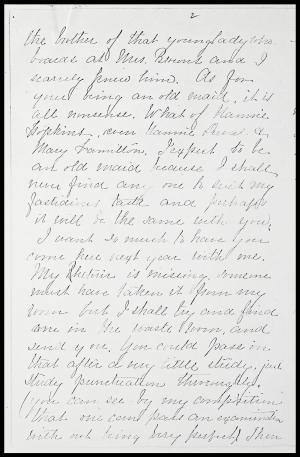 2
the brother of that young lady who
boards at Mrs. and I
scarcely knew him. As for
your being an old maid, it is
all nonsense. What of Nannie
Hopkins, even Nannie &
Mary Hamilton. I expect to be
an old maid because I shall
never find any one to suit my
fastidious taste and perhaps
it will be the same with you.
I want so much to have you
come here next year with me.
My Rhetoric is missing, someone
must have taken it from my
room but I shall try and find
one in the waste room, and
send you. You could pass in
that after a very little study, just
study punctuation thoroughly.
(you can see by my composition
that one can pass an examination
with out being very perfect) Then